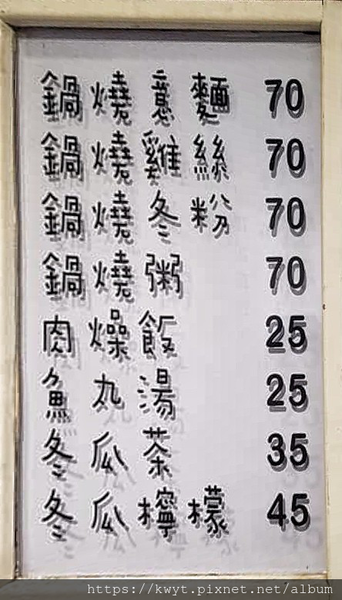 鍋燒意麵 70
鍋燒雞絲 70
鍋燒冬粉 70
鍋燒粥 70
肉燥飯 25
魚丸湯 25
冬瓜茶 35
冬瓜檸檬 45
https://kwyt.pixnet.net/album